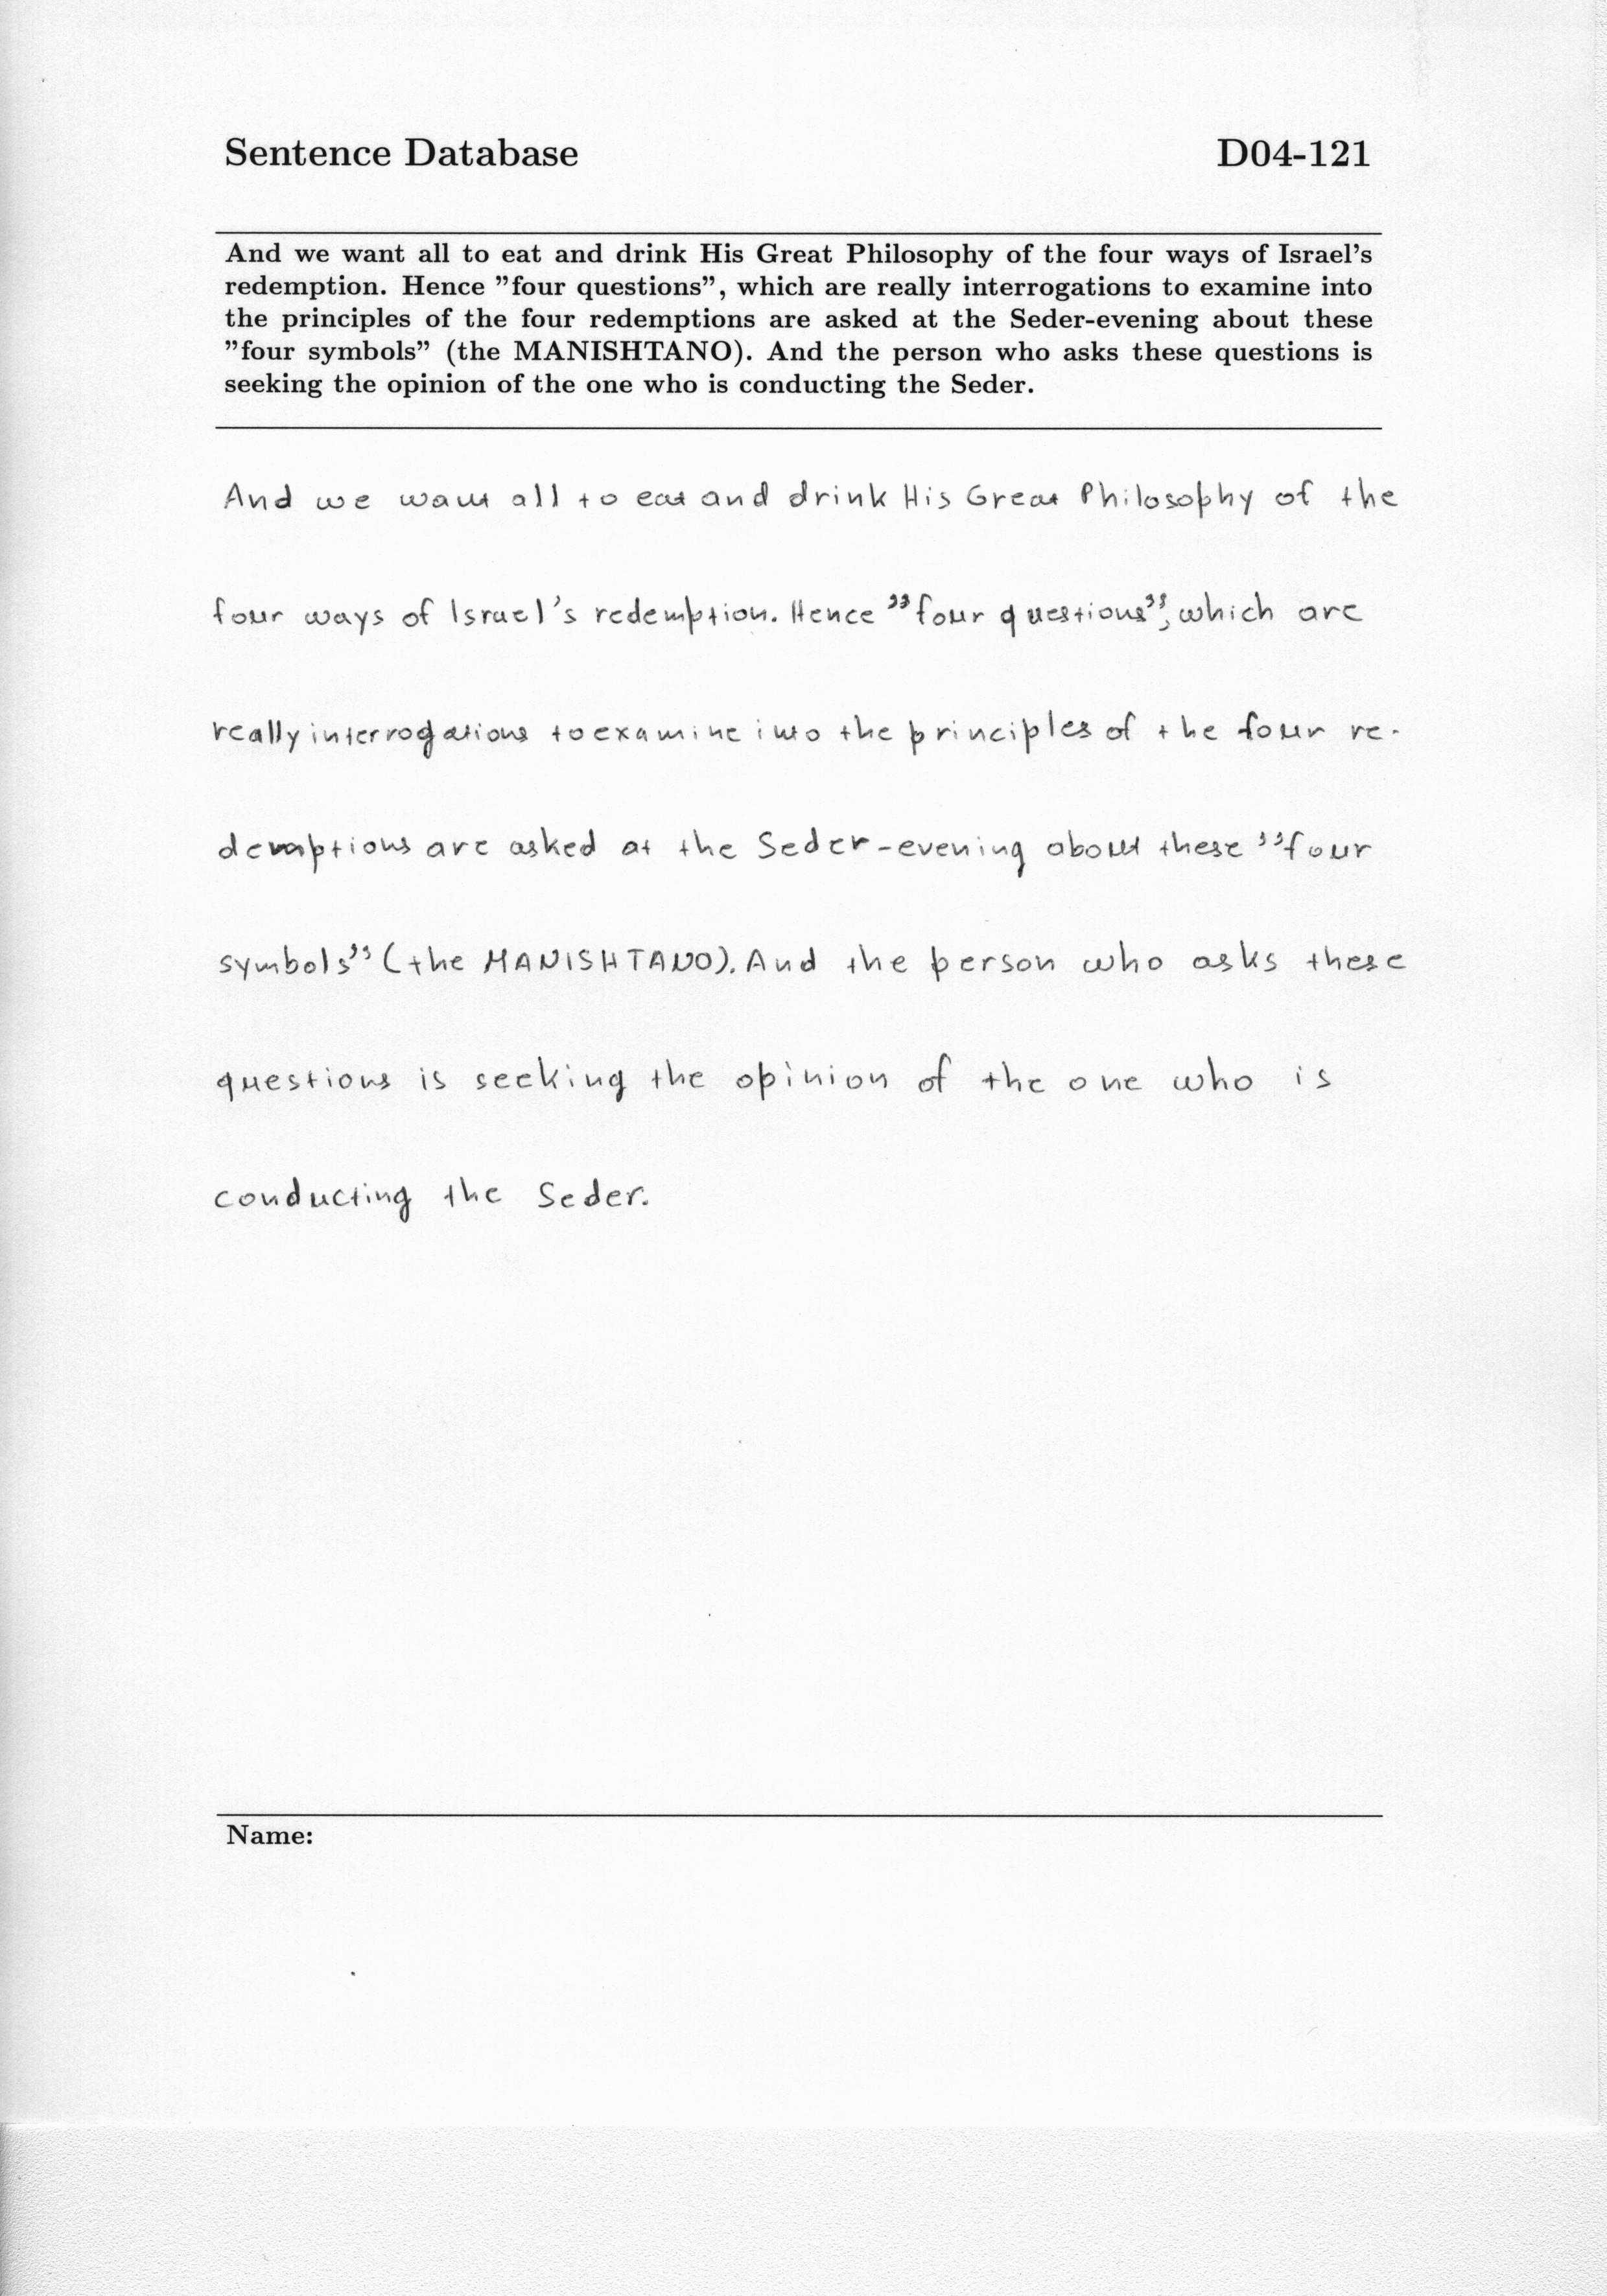 Sentence Database D04-121
And we want all to eat and drink His Great Philosophy of the four ways of Israel's
redemption. Hence ”four questions”, which are really interrogations to examine into
the principles of the four redemptions are asked at the Seder-evening about these
”four symbols” (the MANISHTANO). And the person who asks these questions is
seeking the opinion of the one who is conducting the Seder.
And we want all to eat and drink His Great Philosophy of the
four ways of Israel's redemption. Hence ”four questions”, which are
really interrogations to examine into the principles of the four re-
demptions are asked at the Seder-evening about these ”four
symbols” (the MANISHTANO). And the person who asks these
questions is seeking the opinion of the one who is
conducting the Seder.
Name: